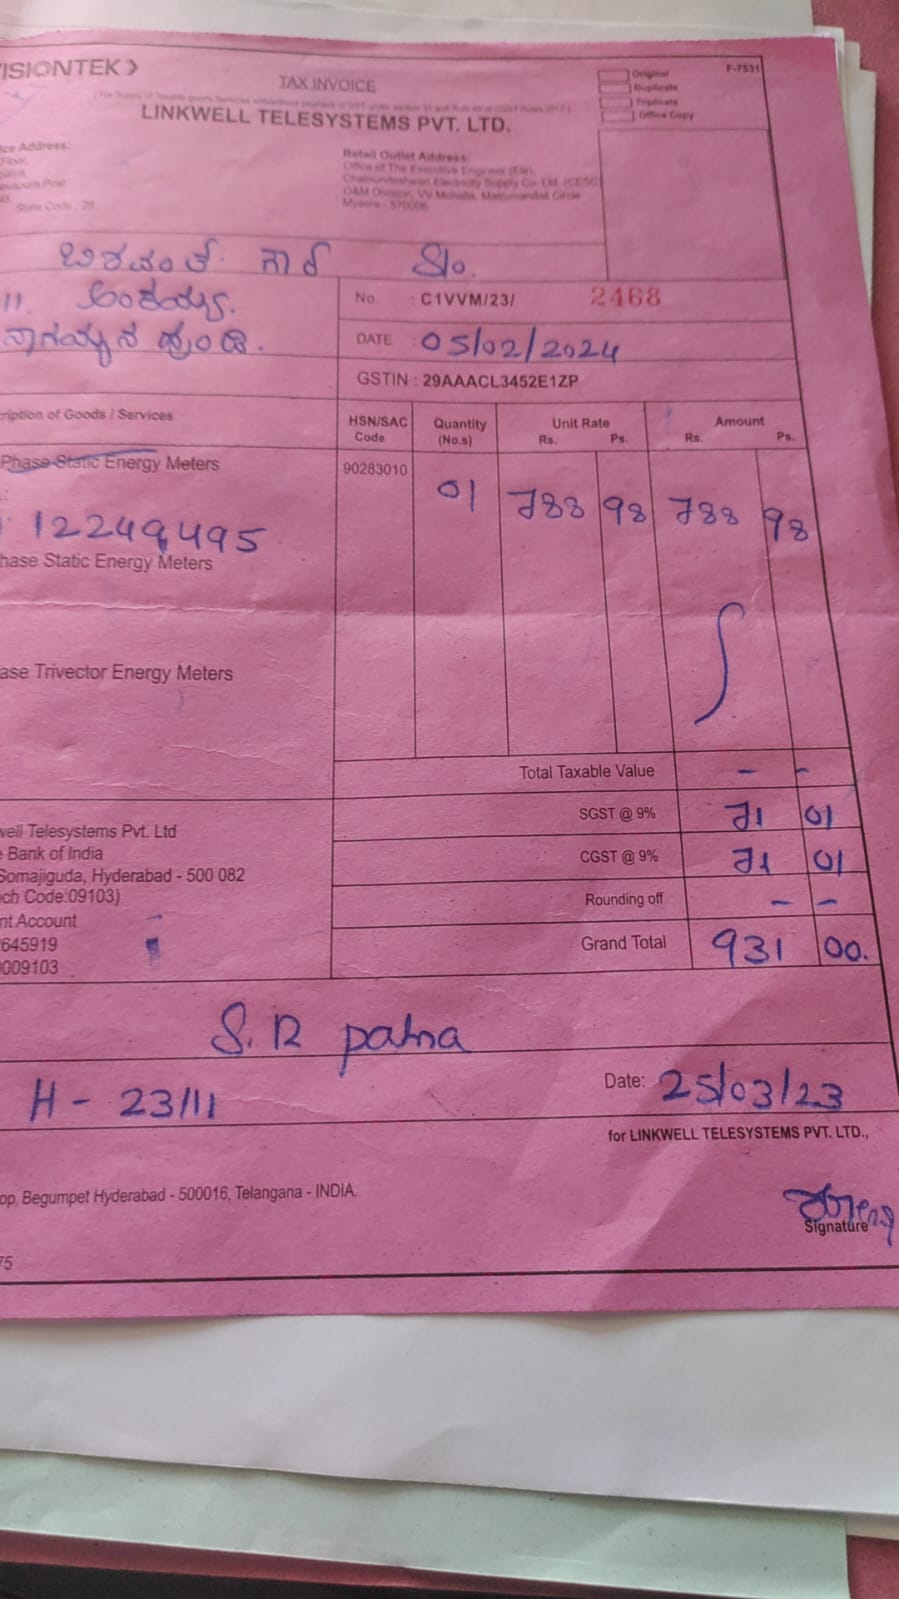 ISIONTEK
TAX INVOICE
LINKWELL TELESYSTEMS PVT. LTD.
F-7531
Original
Duplicate
Triplicate
Office Copy
ce Address:
Floor,
State Code : 29
Retail Outlet Address:
Office of The Executive Engineer (Ele),
Chamundeshwari Electricity Supply Co. Ltd. (CESC)
O&M Division, VV Mohalla, Matrumandali Circle
Mysore - 570006
S/o.
No. : C1VVM/23/ 2468
DATE : 05/02/2024
GSTIN : 29AAACL3452E1ZP
ription of Goods / Services HSN/SAC Code Quantity (No.s) Unit Rate Rs. Ps. Amount Rs. Ps.
Phase Static Energy Meters 90283010 01 788 98 788 98
12249495
hase Static Energy Meters
ase Trivector Energy Meters
Total Taxable Value - -
SGST @ 9% 71 01
CGST @ 9% 71 01
Rounding off - -
Grand Total 931 00.
well Telesystems Pvt. Ltd
Bank of India
Somajiguda, Hyderabad - 500 082
ch Code:09103)
nt Account
645919
009103
S. R patna
H - 23/11
Date: 25/03/23
for LINKWELL TELESYSTEMS PVT. LTD.,
op, Begumpet Hyderabad - 500016, Telangana - INDIA.
Signature
75